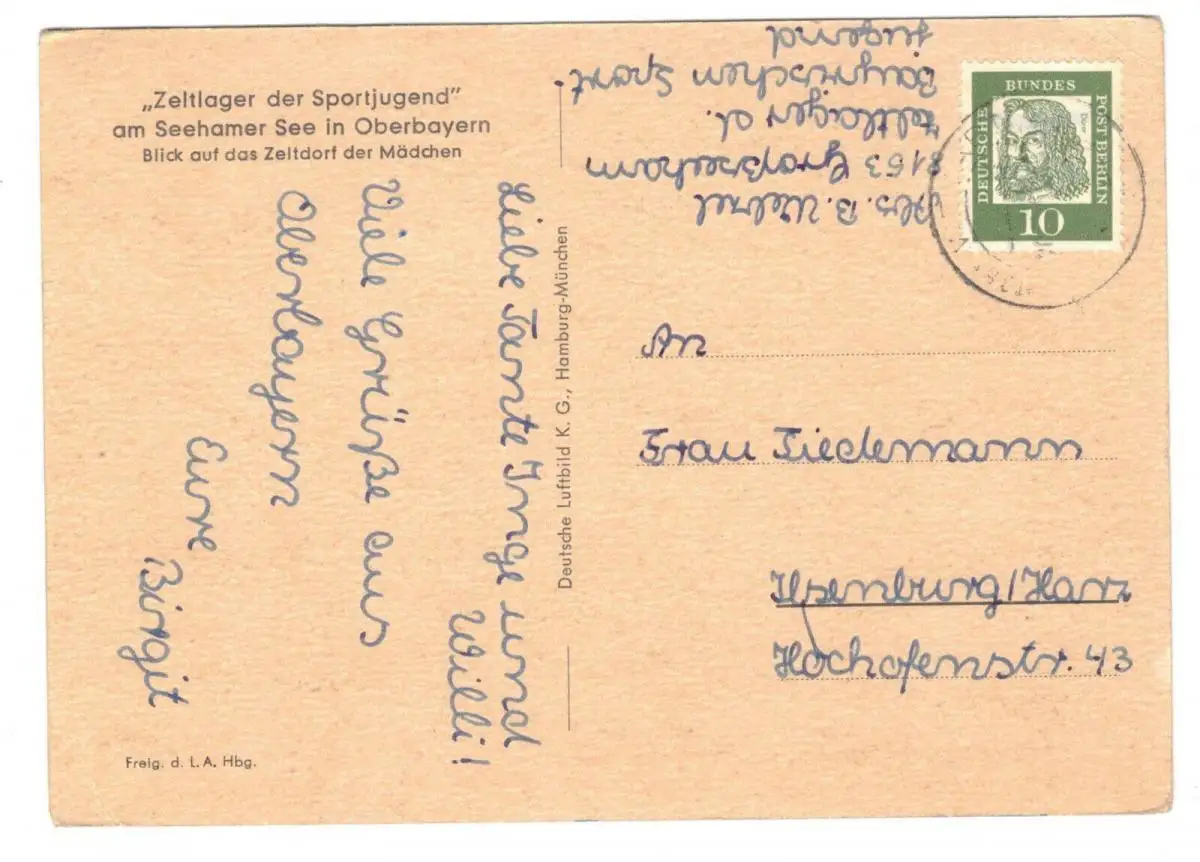 „Zeltlager der Sportjugend"
am Seehamer See in Oberbayern
Blick auf das Zeltdorf der Mädchen
Liebe Tante Inge und
Willi!
Viele Grüße aus
Oberbayern
Eure
Birgit
Freig. d. L. A. Hbg.
Deutsche Luftbild K. G., Hamburg-München
Abs. B.
8153 Großseeham
Zeltlager d.
Bayrischen Sport-
jugend
DEUTSCHE
BUNDES
POST BERLIN
Dürer
10
An
Frau Tiedemann
Ilsenburg/Harz
Hochofenstr. 43